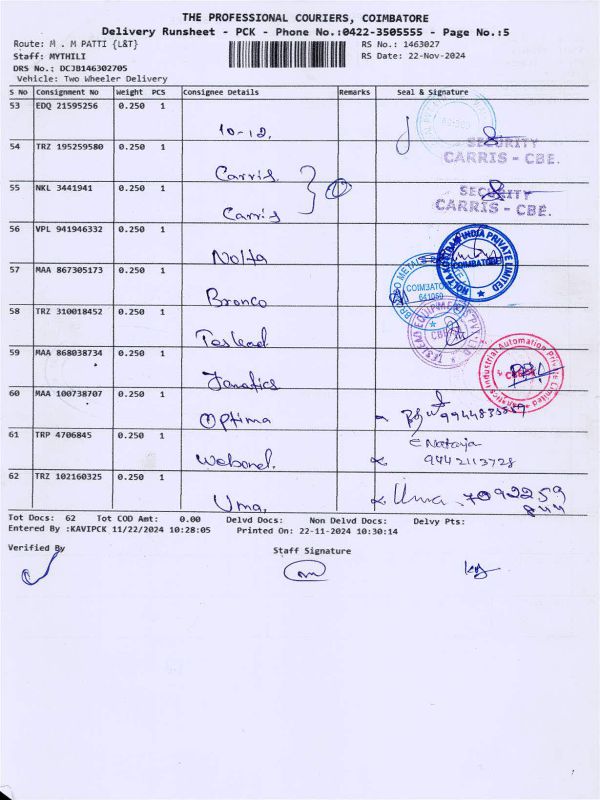 THE PROFESSIONAL COURIERS, COIMBATORE
Delivery Runsheet - PCK - Phone No.:0422-3505555 - Page No.:5
Route: M . M PATTI {L&T} RS No.: 1463027
Staff: MYTHILI RS Date: 22-Nov-2024
DRS No.: DCJB146302705
Vehicle: Two Wheeler Delivery
S No Consignment No Weight PCS Consignee Details Remarks Seal & Signature
53 EDQ 21595256 0.250 1
10-12,
54 TRZ 195259580 0.250 1 SECURITY
Carris CARRIS - CBE.
55 NKL 3441941 0.250 1 SECURITY
Carris CARRIS - CBE.
56 VPL 941946332 0.250 1
Nolta COIMBATORE
57 MAA 867305173 0.250 1
Bronco COIMBATORE
641050
58 TRZ 310018452 0.250 1
59 MAA 868038734 0.250 1
Janatics Industrial Automation Private Limited
60 MAA 100738707 0.250 1
Optima
61 TRP 4706845 0.250 1 Nataraja
9442113728
62 TRZ 102160325 0.250 1
Uma, Uma. 7092259
844
Tot Docs: 62 Tot COD Amt: 0.00 Delvd Docs: Non Delvd Docs: Delvy Pts:
Entered By :KAVIPCK 11/22/2024 10:28:05 Printed On: 22-11-2024 10:30:14
Verified By Staff Signature